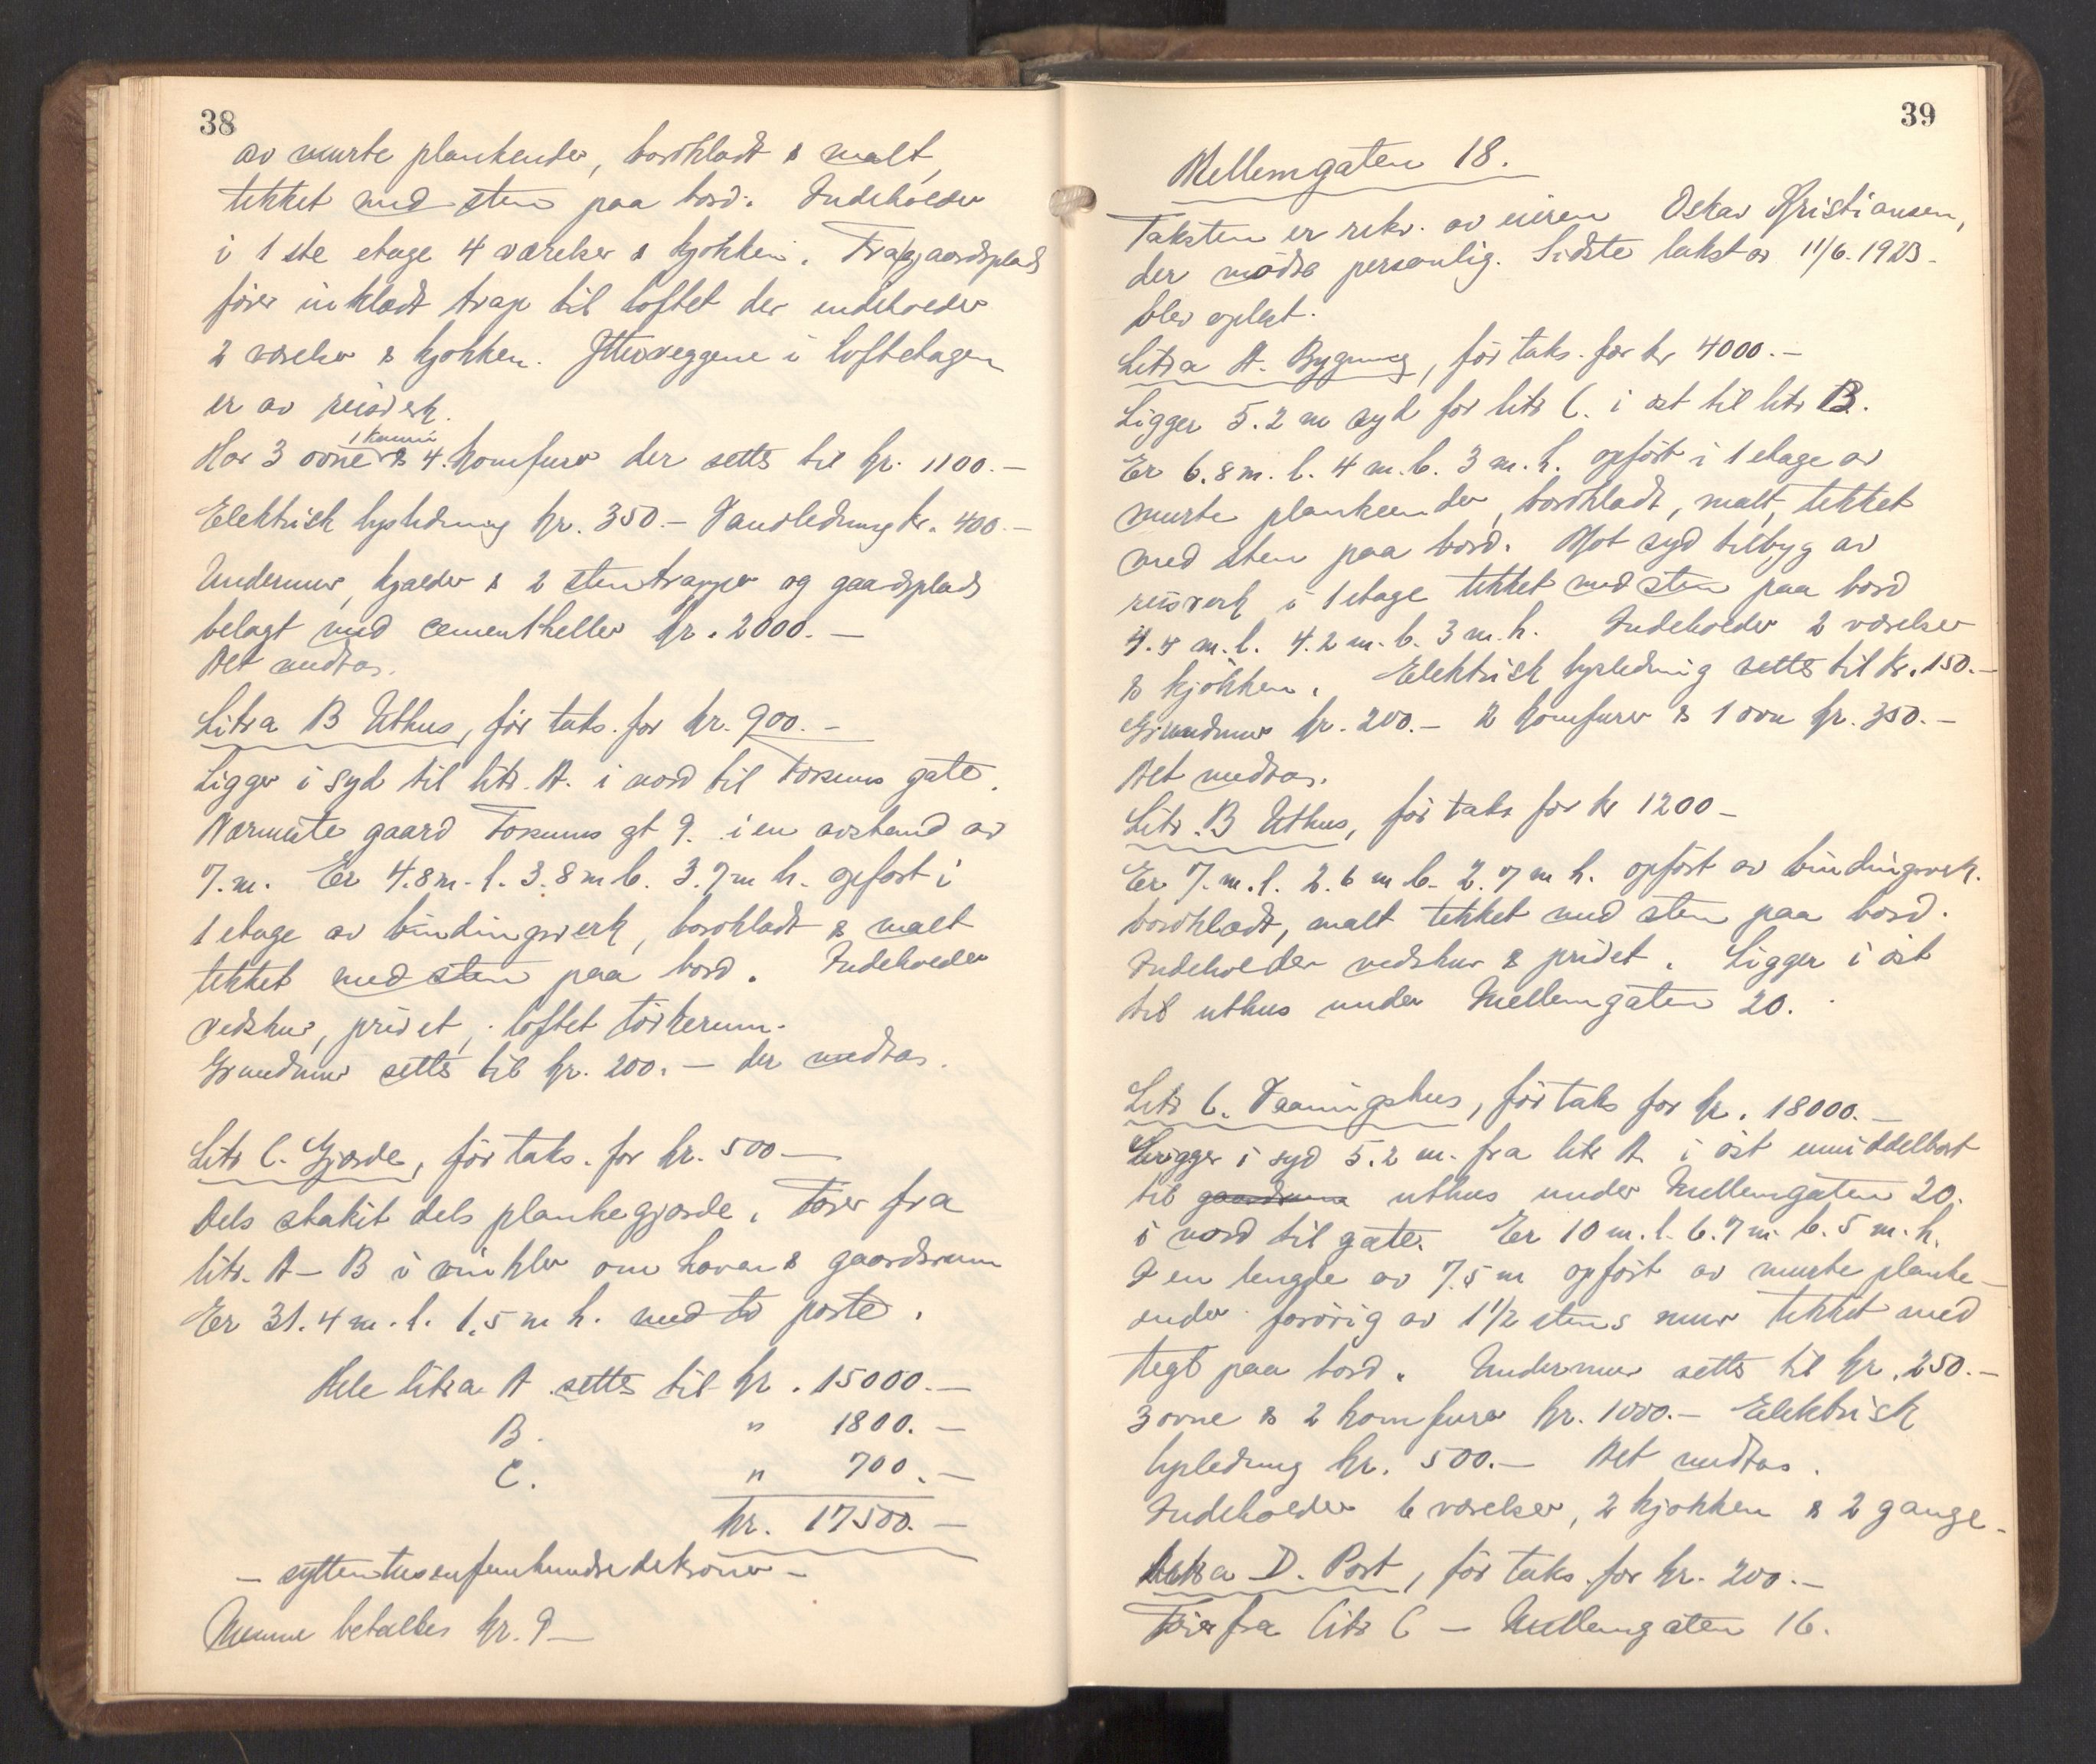 38
av murte plankender, bordklædt & malt,
tekket med sten paa bord. Indeholder
i 1ste etage 4 værelser & kjøkken. Fra gaardsplads
fører inklædt trap til loftet der indeholder
2 værelser & kjøkken. Ytterveggene i loftetagen
er av reisverk.
1 kamin
Har 3 ovne & 4 komfurer der settes til kr. 1100.-
Elektrisk lysledning kr. 350.- Vandledning kr. 400.-
Undermur, kjælder & 2 stentrapper og gaardsplads
belagt med cementheller kr. 2000.-
Alt medtas.
Litra B Uthus, før taks. for kr. 900.-
Ligger i syd til litr. A. i nord til Fosums gate.
Nærmeste gaard Fosums gt 9. i en avstand av
7.m. Er 4.8 m. l. 3.8 m b. 3.7 m h. opført i
1 etage av bindingsverk, bordklædt & malt
tekket med sten paa bord. Indeholder
vedskur, privet, loftet tørkerum.
Grundmur settes til kr. 200.- der medtas.
Litr C. Gjærde, før taks. for kr. 500-
Dels stakit dels plankegjærde. Fører fra
litr. A - B i vinkler om haven & gaardsrum
Er 31.4 m. l. 1.5 m h. med to porte.
Hele litra A settes til kr. 15000.-
B. " 1800.-
C. " 700.-
kr. 17500.-
- syttentusenfemhundredekroner -
kr. 9-
39
Mellemgaten 18.
Taksten er rekv. av eieren Oskar Kristiansen,
der mødte personlig. Sidste takst av 11/6. 1923.
blev oplest.
Litra A. Bygning, før taks. for kr 4000.-
Ligger 5.2 m syd for litr C. i øst til litr B.
Er 6.8 m. l. 4 m. b. 3 m. h. opført i 1 etage av
murte plankeender, bordklædt, malt, tekket
med sten paa bord. Mot syd tilbyg av
reisverk i 1 etage tekket med sten paa bord
4.4 m. l. 4.2 m. b. 3 m. h. Indeholder 2 værelser
& kjøkken. Elektrisk lysledning settes til kr. 150.-
Grundmur kr. 200.- 2 komfurer & 1 ovn kr. 350.-
Alt medtas.
Litr. B Uthus, før taks for kr 1200-
Er 7. m. l. 2.6 m b. 2.7 m h. opført av bindingsverk.
bordklædt, malt tekket med sten paa bord.
Indeholder vedskur & privet. Ligger i øst
til uthus under Mellemgaten 20.
Litr C. Vaaningshus, før taks for kr. 18000.-
Ligger i syd 5.2 m. fra litr A i øst umiddelbart
til gaardsrum uthus under Mellemgaten 20.
i nord til gate. Er 10 m. l. 6.7 m. b. 5 m. h.
I en lengde av 7.5 m opført av murte planke-
ender forøvrig av 1 1/2 stens mur tekket med
tegl paa bord. Undermur settes til kr. 250.-
3 ovne & 2 komfurer kr. 1000.- Elektrisk
lysledning kr. 500.- Alt medtas.
Indeholder 6 værelser, 2 kjøkken & 2 gange.
Litra D. Port, før taks. for kr. 200.-
Fører fra litr C - Mellemgaten 16.